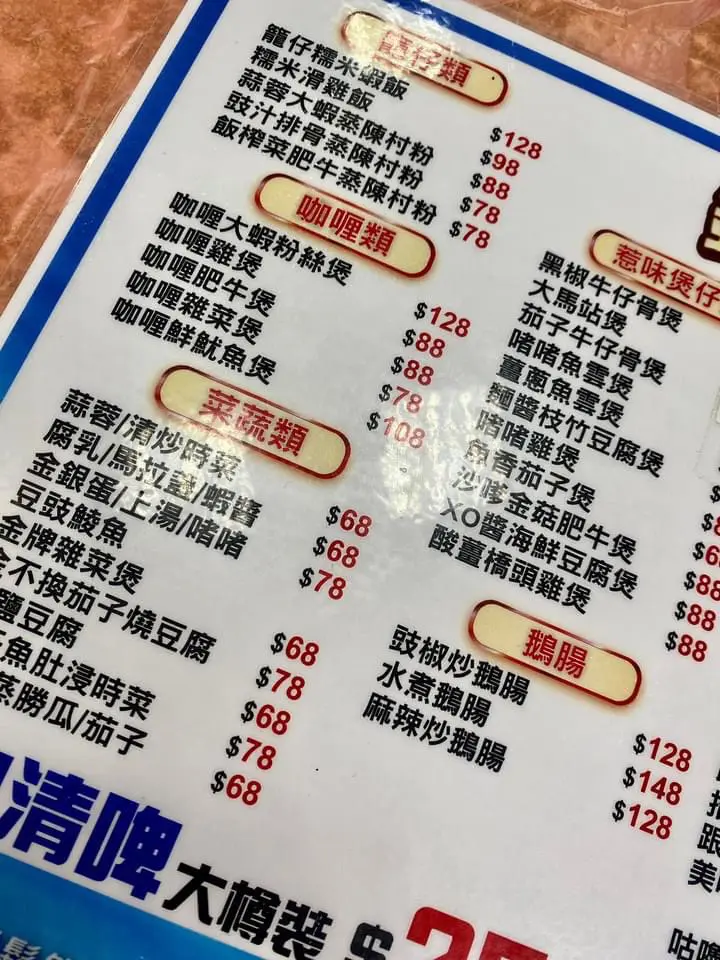 籠仔類
籠仔糯米蝦飯 $128
糯米滑雞飯 $98
蒜蓉大蝦蒸陳村粉 $88
豉汁排骨蒸陳村粉 $78
飯榨菜肥牛蒸陳村粉 $78
咖喱類
咖喱大蝦粉絲煲 $128
咖喱雞煲 $88
咖喱肥牛煲 $88
咖喱雜菜煲 $78
咖喱鮮魷魚煲 $108
菜蔬類
蒜蓉/清炒時菜 $68
腐乳/馬拉盞/蝦醬 $68
金銀蛋/上湯/啫啫 $78
豆豉鯪魚
金牌雜菜煲 $68
不換茄子燒豆腐 $78
鹽豆腐 $68
魚肚浸時菜 $78
蒸勝瓜/茄子 $68
惹味煲仔
黑椒牛仔骨煲
大馬站煲
茄子牛仔骨煲
啫啫魚雲煲
薑蔥魚雲煲
麵醬枝竹豆腐煲
啫啫雞煲
魚香茄子煲
沙嗲金菇肥牛煲
XO醬海鮮豆腐煲 $88
酸薑橋頭雞煲 $88
鵝腸
豉椒炒鵝腸 $128
水煮鵝腸 $148
麻辣炒鵝腸 $128
清啤 大樽裝 $
跟
美
咕